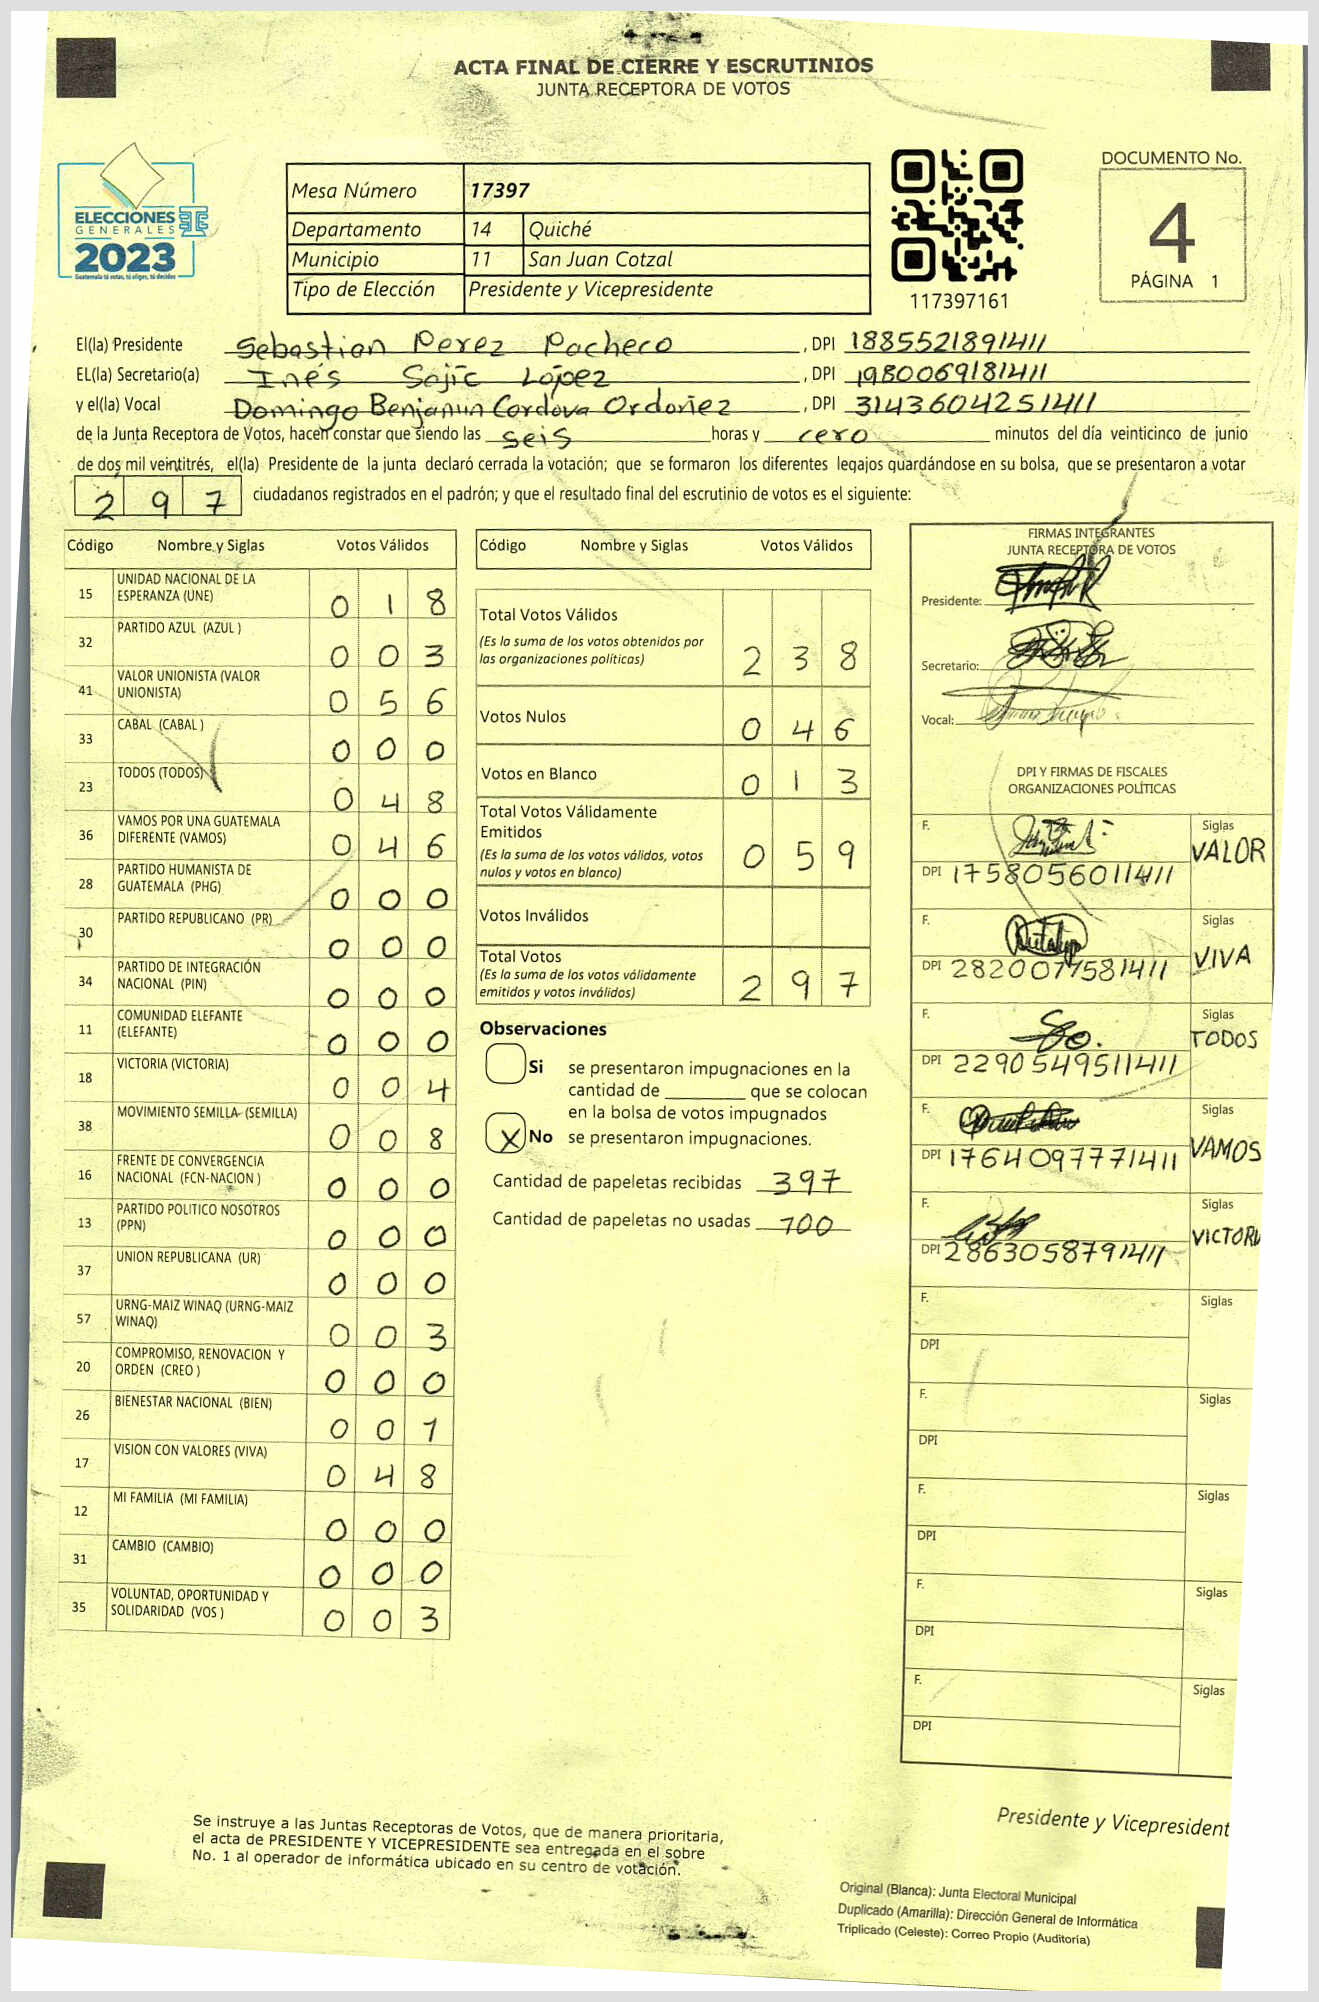 ACTA FINAL DE CIERRE Y ESCRUTINIOS
JUNTA RECEPTORA DE VOTOS
ELECCIONES
GENERALES
2023
Guatemala tú votas, tú eliges, tú decides
Mesa Número 17397
Departamento 14 Quiché
Municipio 11 San Juan Cotzal
Tipo de Elección Presidente y Vicepresidente
117397161
DOCUMENTO No.
4
PÁGINA 1
El(la) Presidente Sebastian Perez Pacheco , DPI 1885521891411
EL(la) Secretario(a) Inés Sajic López , DPI 1980069181411
y el(la) Vocal Domingo Benjamin Cordova Ordoñez , DPI 3143604251411
de la Junta Receptora de Votos, hacen constar que siendo las seis horas y cero minutos del día veinticinco de junio
de dos mil veintitrés, el(la) Presidente de la junta declaró cerrada la votación; que se formaron los diferentes legajos guardándose en su bolsa, que se presentaron a votar
297 ciudadanos registrados en el padrón; y que el resultado final del escrutinio de votos es el siguiente:
Código Nombre y Siglas Votos Válidos
15 UNIDAD NACIONAL DE LA
ESPERANZA (UNE) 0 1 8
32 PARTIDO AZUL (AZUL ) 0 0 3
41 VALOR UNIONISTA (VALOR
UNIONISTA) 0 5 6
33 CABAL (CABAL ) 0 0 0
23 TODOS (TODOS) 0 4 8
36 VAMOS POR UNA GUATEMALA
DIFERENTE (VAMOS) 0 4 6
28 PARTIDO HUMANISTA DE
GUATEMALA (PHG) 0 0 0
30 PARTIDO REPUBLICANO (PR) 0 0 0
34 PARTIDO DE INTEGRACIÓN
NACIONAL (PIN) 0 0 0
11 COMUNIDAD ELEFANTE
(ELEFANTE) 0 0 0
18 VICTORIA (VICTORIA) 0 0 4
38 MOVIMIENTO SEMILLA (SEMILLA) 0 0 8
16 FRENTE DE CONVERGENCIA
NACIONAL (FCN-NACION ) 0 0 0
13 PARTIDO POLITICO NOSOTROS
(PPN) 0 0 0
37 UNION REPUBLICANA (UR) 0 0 0
57 URNG-MAIZ WINAQ (URNG-MAIZ
WINAQ) 0 0 3
20 COMPROMISO, RENOVACION Y
ORDEN (CREO ) 0 0 0
26 BIENESTAR NACIONAL (BIEN) 0 0 1
17 VISION CON VALORES (VIVA) 0 4 8
12 MI FAMILIA (MI FAMILIA) 0 0 0
31 CAMBIO (CAMBIO) 0 0 0
35 VOLUNTAD, OPORTUNIDAD Y
SOLIDARIDAD (VOS ) 0 0 3
Código Nombre y Siglas Votos Válidos
Total Votos Válidos
(Es la suma de los votos obtenidos por
las organizaciones políticas) 2 3 8
Votos Nulos 0 4 6
Votos en Blanco 0 1 3
Total Votos Válidamente
Emitidos
(Es la suma de los votos válidos, votos
nulos y votos en blanco) 0 5 9
Votos Inválidos
Total Votos
(Es la suma de los votos válidamente
emitidos y votos inválidos) 2 9 7
Observaciones
Si se presentaron impugnaciones en la
cantidad de ________ que se colocan
en la bolsa de votos impugnados
X No se presentaron impugnaciones.
Cantidad de papeletas recibidas 397
Cantidad de papeletas no usadas 100
FIRMAS INTEGRANTES
JUNTA RECEPTORA DE VOTOS
Presidente:
Secretario:
Vocal:
DPI Y FIRMAS DE FISCALES
ORGANIZACIONES POLÍTICAS
F. Siglas
VALOR
DPI 1758056011411
F. Siglas
VIVA
DPI 2820077581411
F. Siglas
TODOS
DPI 2290549511411
F. Siglas
VAMOS
DPI 1764097771411
F. Siglas
VICTORI
DPI 2863058791411
F. Siglas
DPI
F. Siglas
DPI
F. Siglas
DPI
F. Siglas
DPI
F. Siglas
DPI
Se instruye a las Juntas Receptoras de Votos, que de manera prioritaria,
el acta de PRESIDENTE Y VICEPRESIDENTE sea entregada en el sobre
No. 1 al operador de informática ubicado en su centro de votación.
Presidente y Vicepresident
Original (Blanca): Junta Electoral Municipal
Duplicado (Amarilla): Dirección General de Informática
Triplicado (Celeste): Correo Propio (Auditoría)